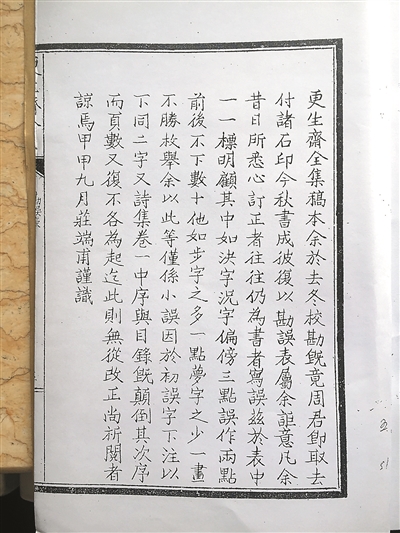 更生齋全集稿本余於去冬校勘旣竟周君卽取去
付諸石印今秋書成彼復以勘誤表屬余詎意凡余
昔日所悉心訂正者往往仍為書者寫誤茲於表中
一一標明顧其中如決字況字偏傍三點誤作兩點
前後不下數十他如步字之多一點夢字之少一畫
不勝枚舉余以此等僅係小誤因於初誤字下注以
下同二字又詩集卷一中序與目錄旣顛倒其次序
而頁數又復不各為起迄此則無從改正尚祈閱者
諒焉甲甲九月莊端甫謹識
勘誤表
51